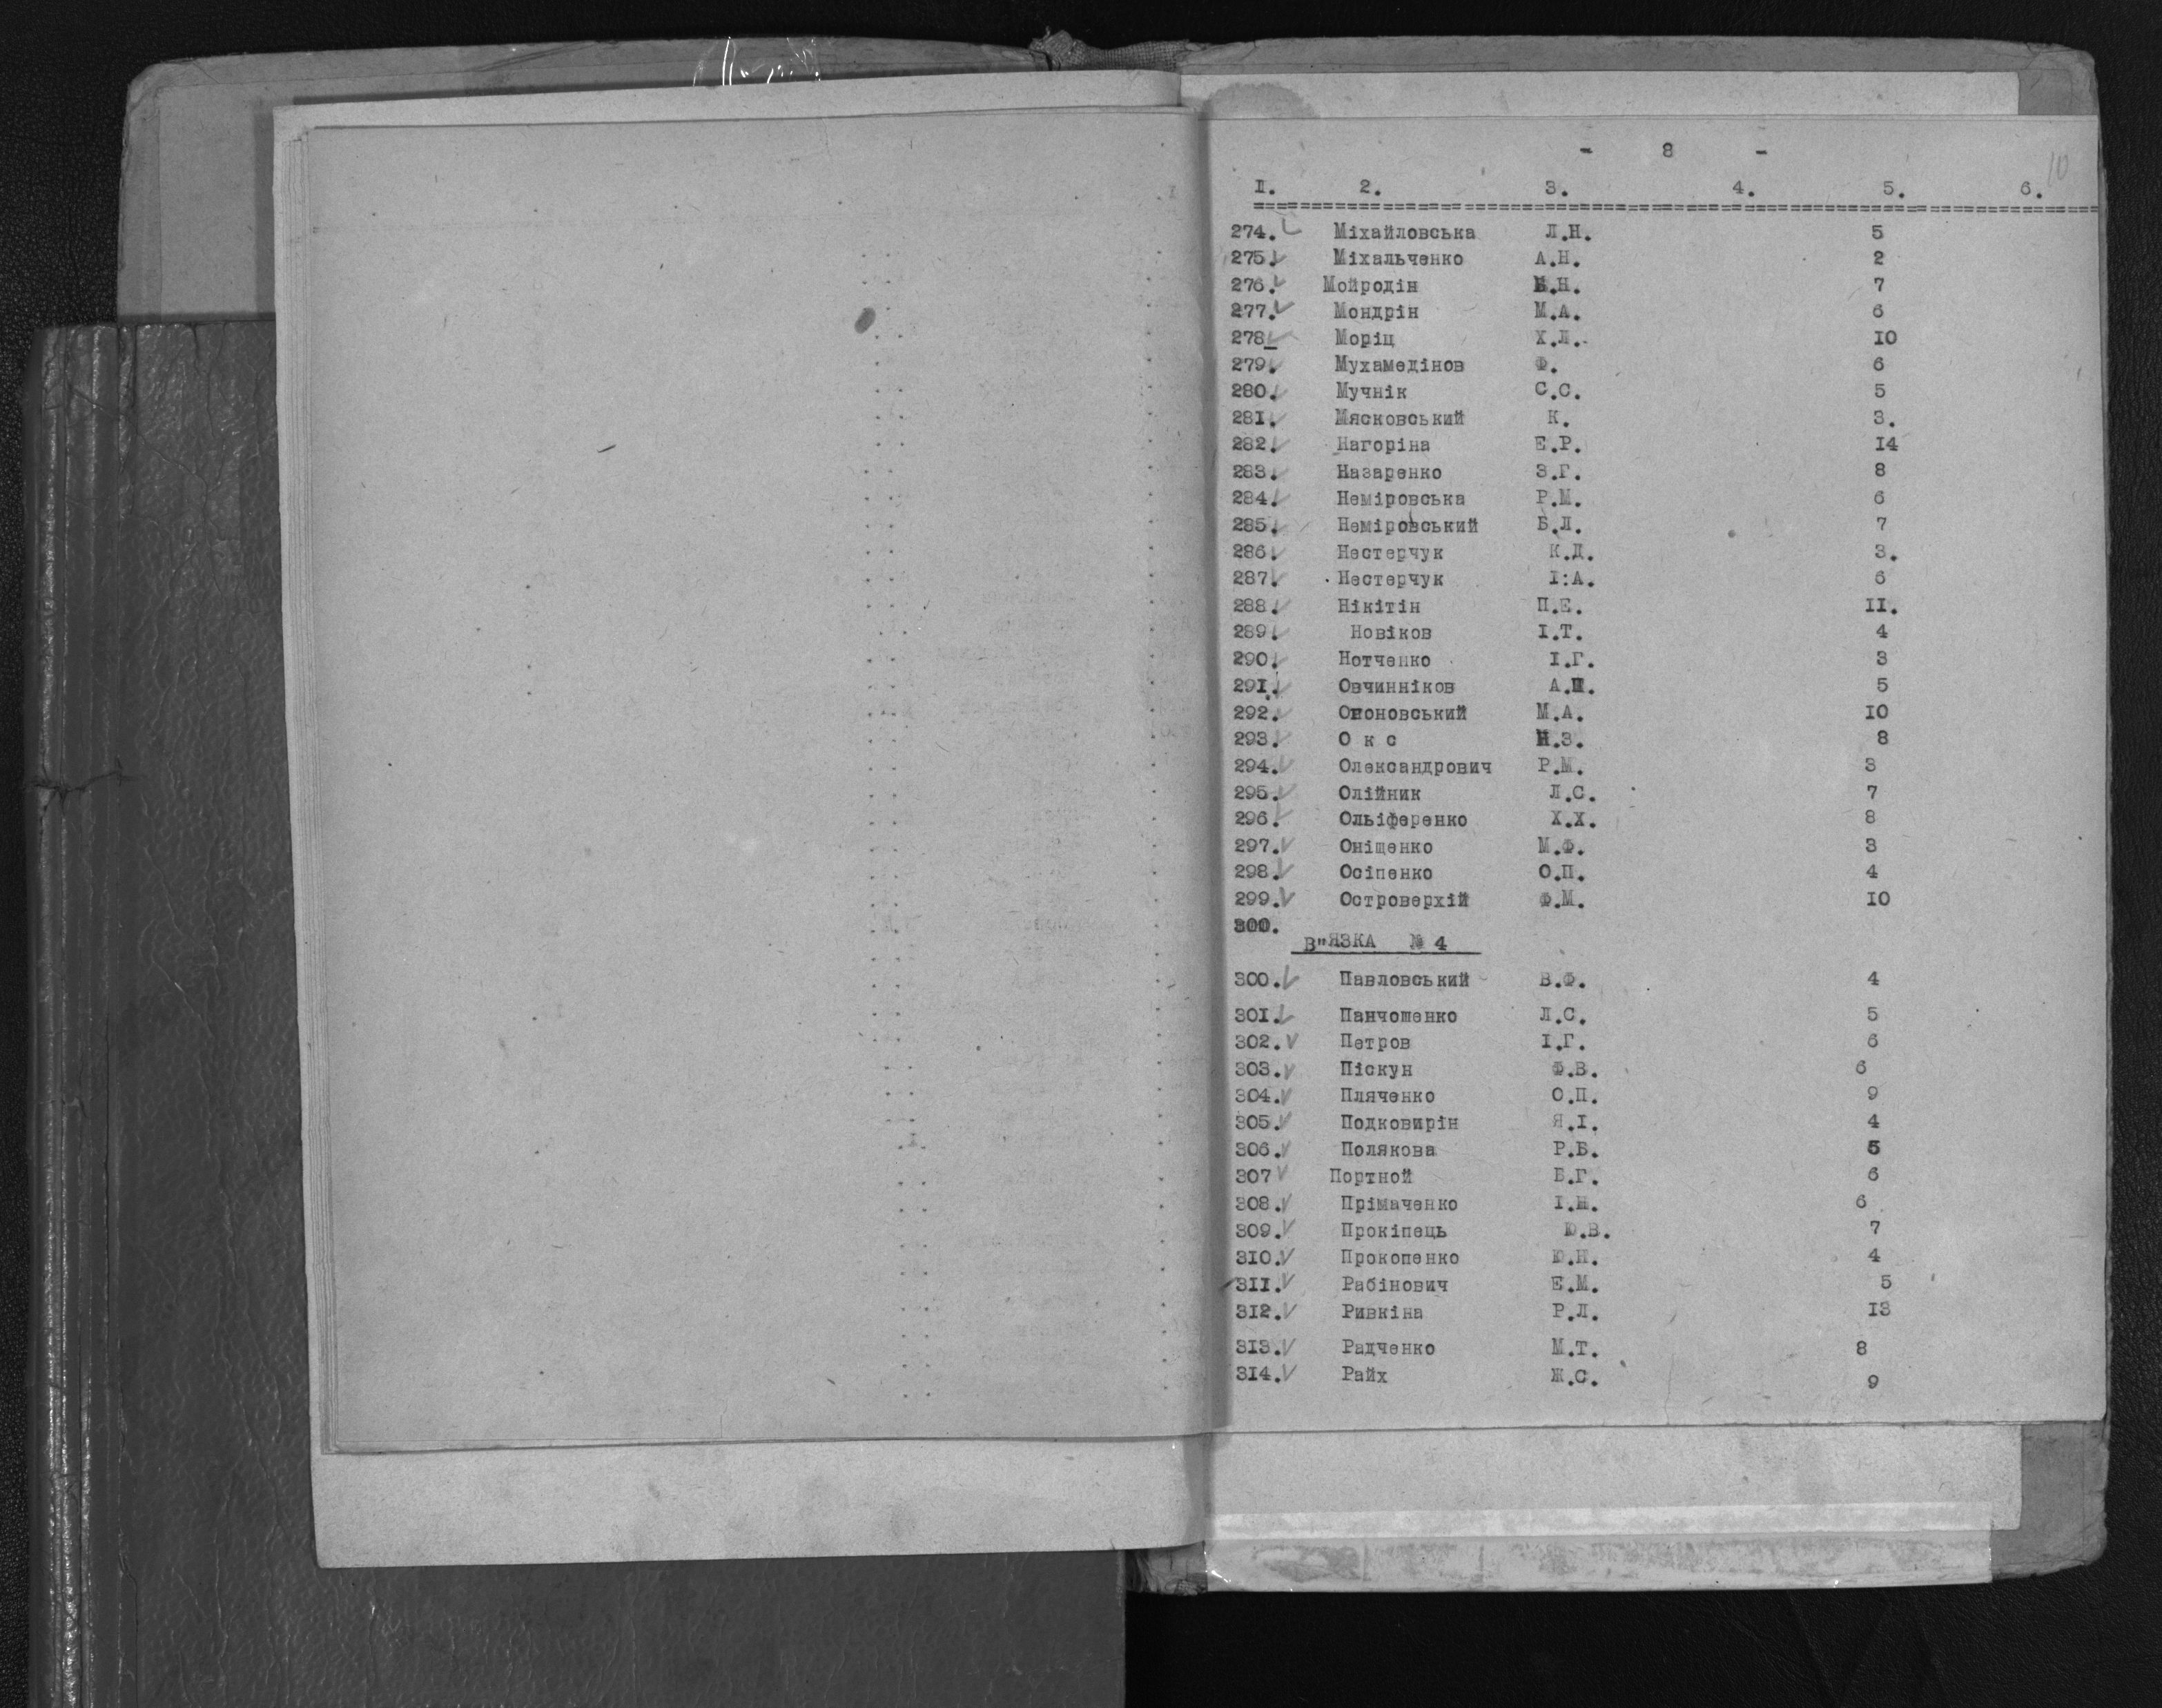 - 8 -
10
I. 2. 3. 4. 5. 6.
274. Міхайловська Л.Н. 5
275. Міхальченко А.Н. 2
276. Мойродін .Н. 7
277. Мондрін М.А. 6
278 Моріц Х.Л. 10
279. Мухамедінов Ф. 6
280. Мучнік С.С. 5
281. Мясковський К. 3.
282. Нагоріна Е.Р. 14
283. Назаренко З.Г. 8
284. Неміровська Р.М. 6
285. Неміровський Б.Л. 7
286. Нестерчук К.Д. 3.
287. Нестерчук І:А. 6
288. Нікітін П.Е. II.
289. Новіков І.Т. 4
290. Нотченко І.Г. 3
291. Овчинніков А. 5
292. М.А. 10
293. О к с Н.З. 8
294. Олександрович Р.М. 3
295. Олійник Л.С. 7
296. Ольіференко Х.Х. 8
297. Оніщенко М.Ф. 3
298. Осіпенко О.П. 4
299. Островерхій Ф.М. 10
300.
В"ЯЗКА № 4
300. Павловський В.Ф. 4
301. Панчошенко Л.С. 5
302. Петров І.Г. 6
303. Піскун Ф.В. 6
304. Пляченко О.П. 9
305. Подковирін Я.І. 4
306. Полякова Р.Б. 5
307 Портной Б.Г. 6
308. Прімаченко І.Н. 6
309. Прокіпець Ю.В. 7
310. Прокопенко Ю.Н. 4
311. Рабінович Е.М. 5
312. Ривкіна Р.Л. 13
313. Радченко М.Т. 8
314. Райх Ж.С. 9